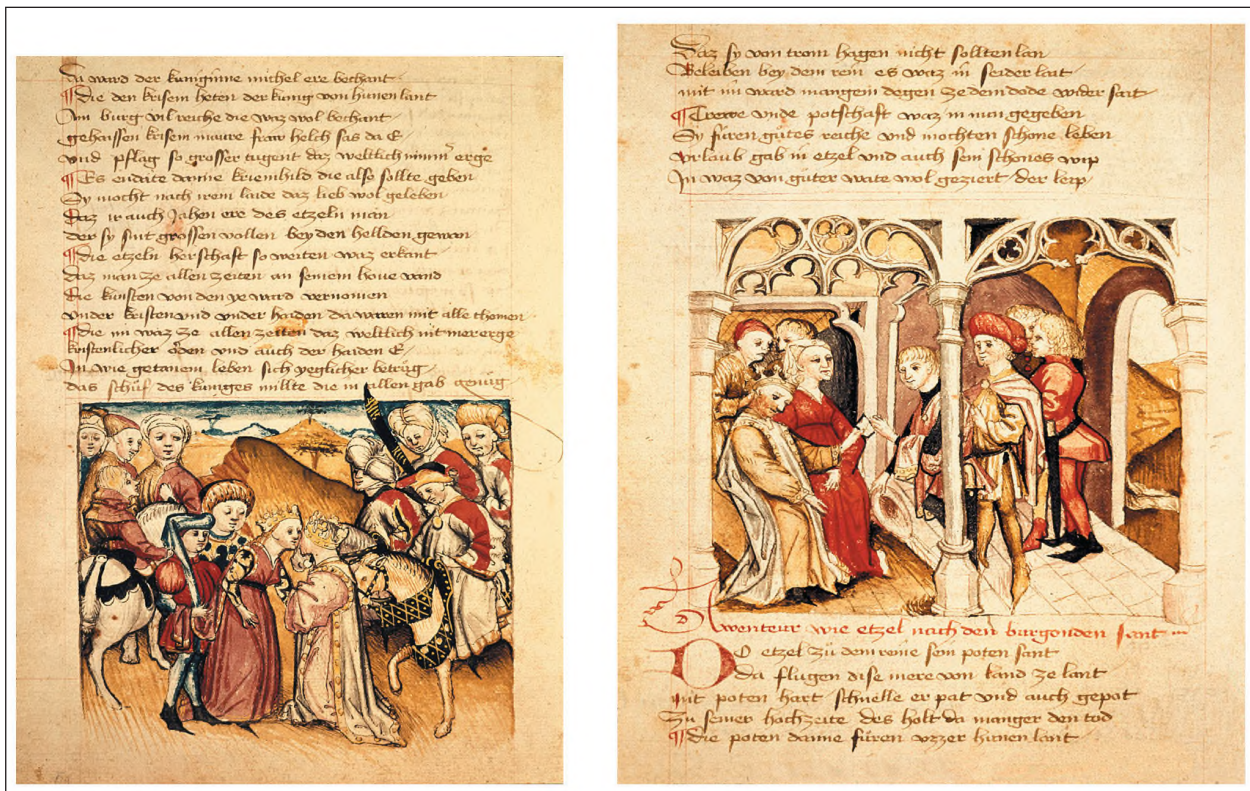 Da ward der kuniginne michel ere bechant
Die den krisem heten der kunig von hunen lant
Ain burg vil reiche die waz wol bechant
gehaissen krisem maure fraw helch sas da E
vnd pflag so grosser tugent daz weltlich nimm erge
Es endaite danne kriemhild die also sollte geben
Sy mocht nach irem laide daz lieb wol geleben
Daz ir auch Jahen ere des etzeln man
der sy sint grossen vollen bey den hellden gewan
die etzeln herschaft so weiten waz erkant
daz man ze allen zeiten an seinem houe vand
die kunsten von den ye ward vernomen
vnder kristen vnd vnder haiden da waren mit alle chomen
die im waz ze allen zeiten daz weltlich nit mer erge
kristenlicher orden vnd auch der haiden E
In wie getanem leben sich yeglicher betrug
das schuf des kuniges millte die in allen gab genug
Daz sy von trom hagen nicht sollten lan
Beleiben bey dem rein es waz in seider lait
mit im ward mangem degen ze dem dode wider sait
Trewe vnde potschaft waz in nun gegeben
Sy furen gutes reiche vnd mochten schone leben
vrlaub gab in etzel vnd auch sein schones wip
In waz von guter wate wol geziert der leip
Awenteur wie etzel nach den burgonden sant
DO etzel zu dem reine sein poten sant
da flugen dise mere von land ze lant
mit poten hart schnelle er pat vnd auch gepot
Zu seiner hochzeite des holt da manger den tod
die poten danne furen vzzer hunen lant